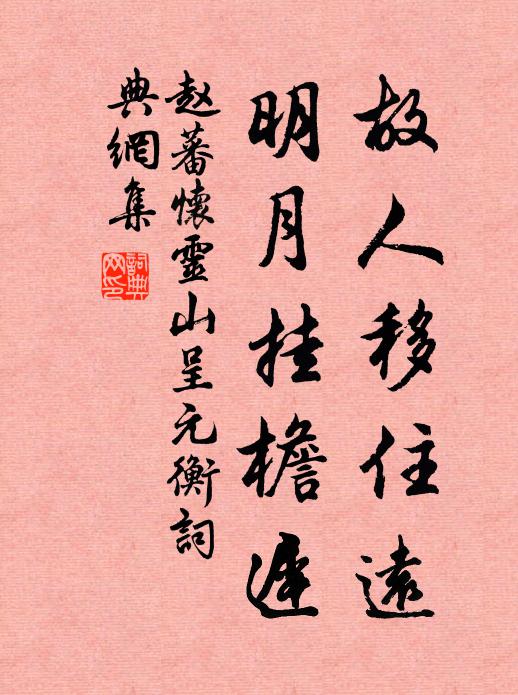 故人移住遠
明月挂檐遲
赵蕃懷靈山呈元衡詞
典網集
詞典網印